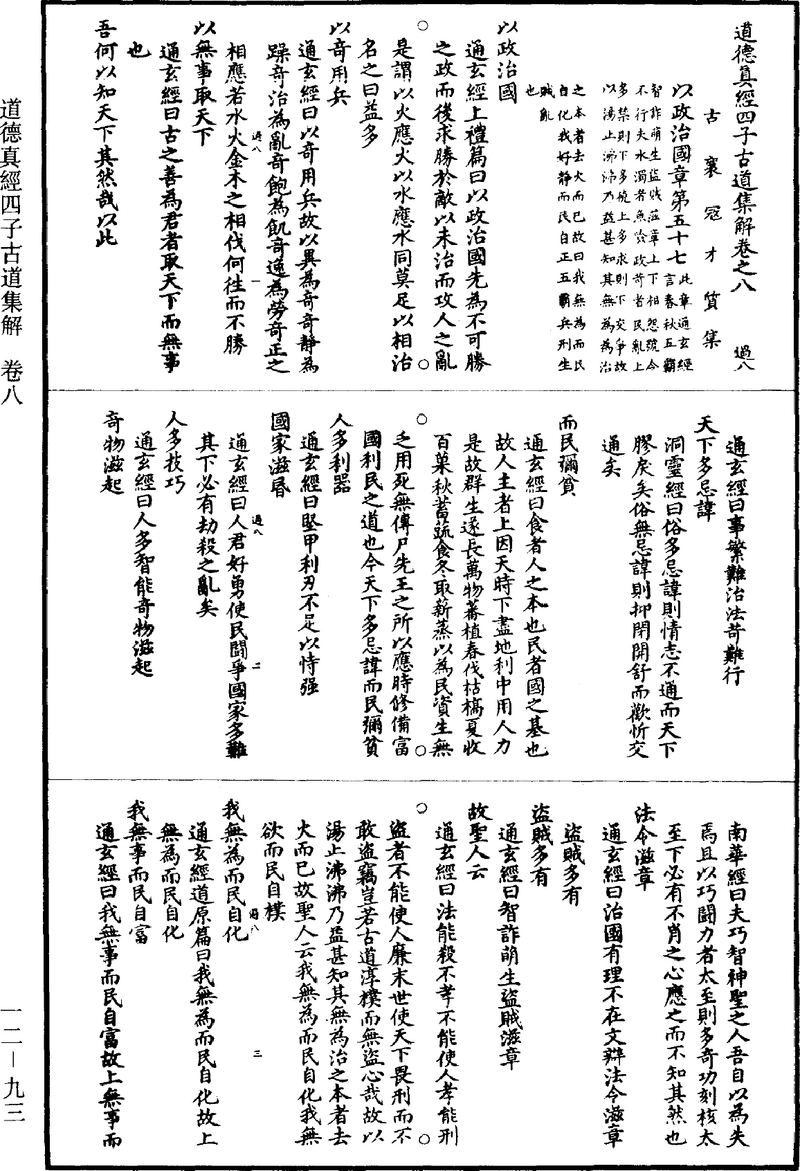 道德真經四子古道集解卷之八
古襄寇才質集 過八
以政治國章第五十七
此章通玄經
言春秋五霸
智詐萌生盜賊滋章上下相怨號令
不行夫水濁者魚噞政苛者民亂上
多禁則下多梔上多求則下交爭故
以湯止沸沸乃益甚知其無為為治
之本者去火而已故曰我無為而民
自化我好靜而民自正五霸兵刑生
賊亂
也
以政治國
通玄經上禮篇曰以政治國先為不可勝
之政而後求勝於敵以未治而攻人之亂
是謂以火應火以水應水同莫足以相治
名之曰益多
以奇用兵
通玄經曰以奇用兵故以異為奇奇靜為
躁奇治為亂奇飽為飢奇逸為勞奇正之
相應若水火金木之相伐何往而不勝
過八 一
以無事取天下
通玄經曰古之善為君者取天下而無事
也
吾何以知天下其然哉以此
通玄經曰事繁難治法苛難行
天下多忌諱
洞靈經曰俗多忌諱則情志不通而天下
膠戾矣俗無忌諱則抑閉開舒而歡忻交
通矣
而民彌貧
通玄經曰食者人之本也民者國之基也
故人主者上因天時下盡地利中用人力
是故群生遂長萬物蕃植春伐枯槁夏收
百菓秋蓄蔬食冬取薪蒸以為民資生無
乏用死無傳尸先王之所以應時修備富
國利民之道也今天下多忌諱而民彌貧
人多利器
通玄經曰堅甲利刃不足以恃强
國家滋昬
過八 二
通玄經曰人君好勇使民鬪爭國家多難
其下必有劫殺之亂矣
人多技巧
通玄經曰人多智能奇物滋起
奇物滋起
南華經曰夫巧智神聖之人吾自以為失
焉且以巧鬪力者太至則多奇功刻核太
至下必有不肖之心應之而不知其然也
法令滋章
通玄經曰治國有理不在文辯法令滋章
盜賊多有
盜賊多有
通玄經曰智詐萌生盜賊滋章
故聖人云
通玄經曰法能殺不孝不能使人孝能刑
盜者不能使人廉末世使天下畏刑而不
敢盜竊豈若古道淳樸而無盜心哉故以
湯止沸沸乃益甚知其無為治之本者去
火而已故聖人云我無為而民自化我無
欲而民自樸
我無為而民自化
過八 三
通玄經道原篇曰我無為而民自化故上
無為而民自化
我無事而民自富
通玄經曰我無事而民自富故上無事而
道德真經四子古道集解 卷八
一二—九三